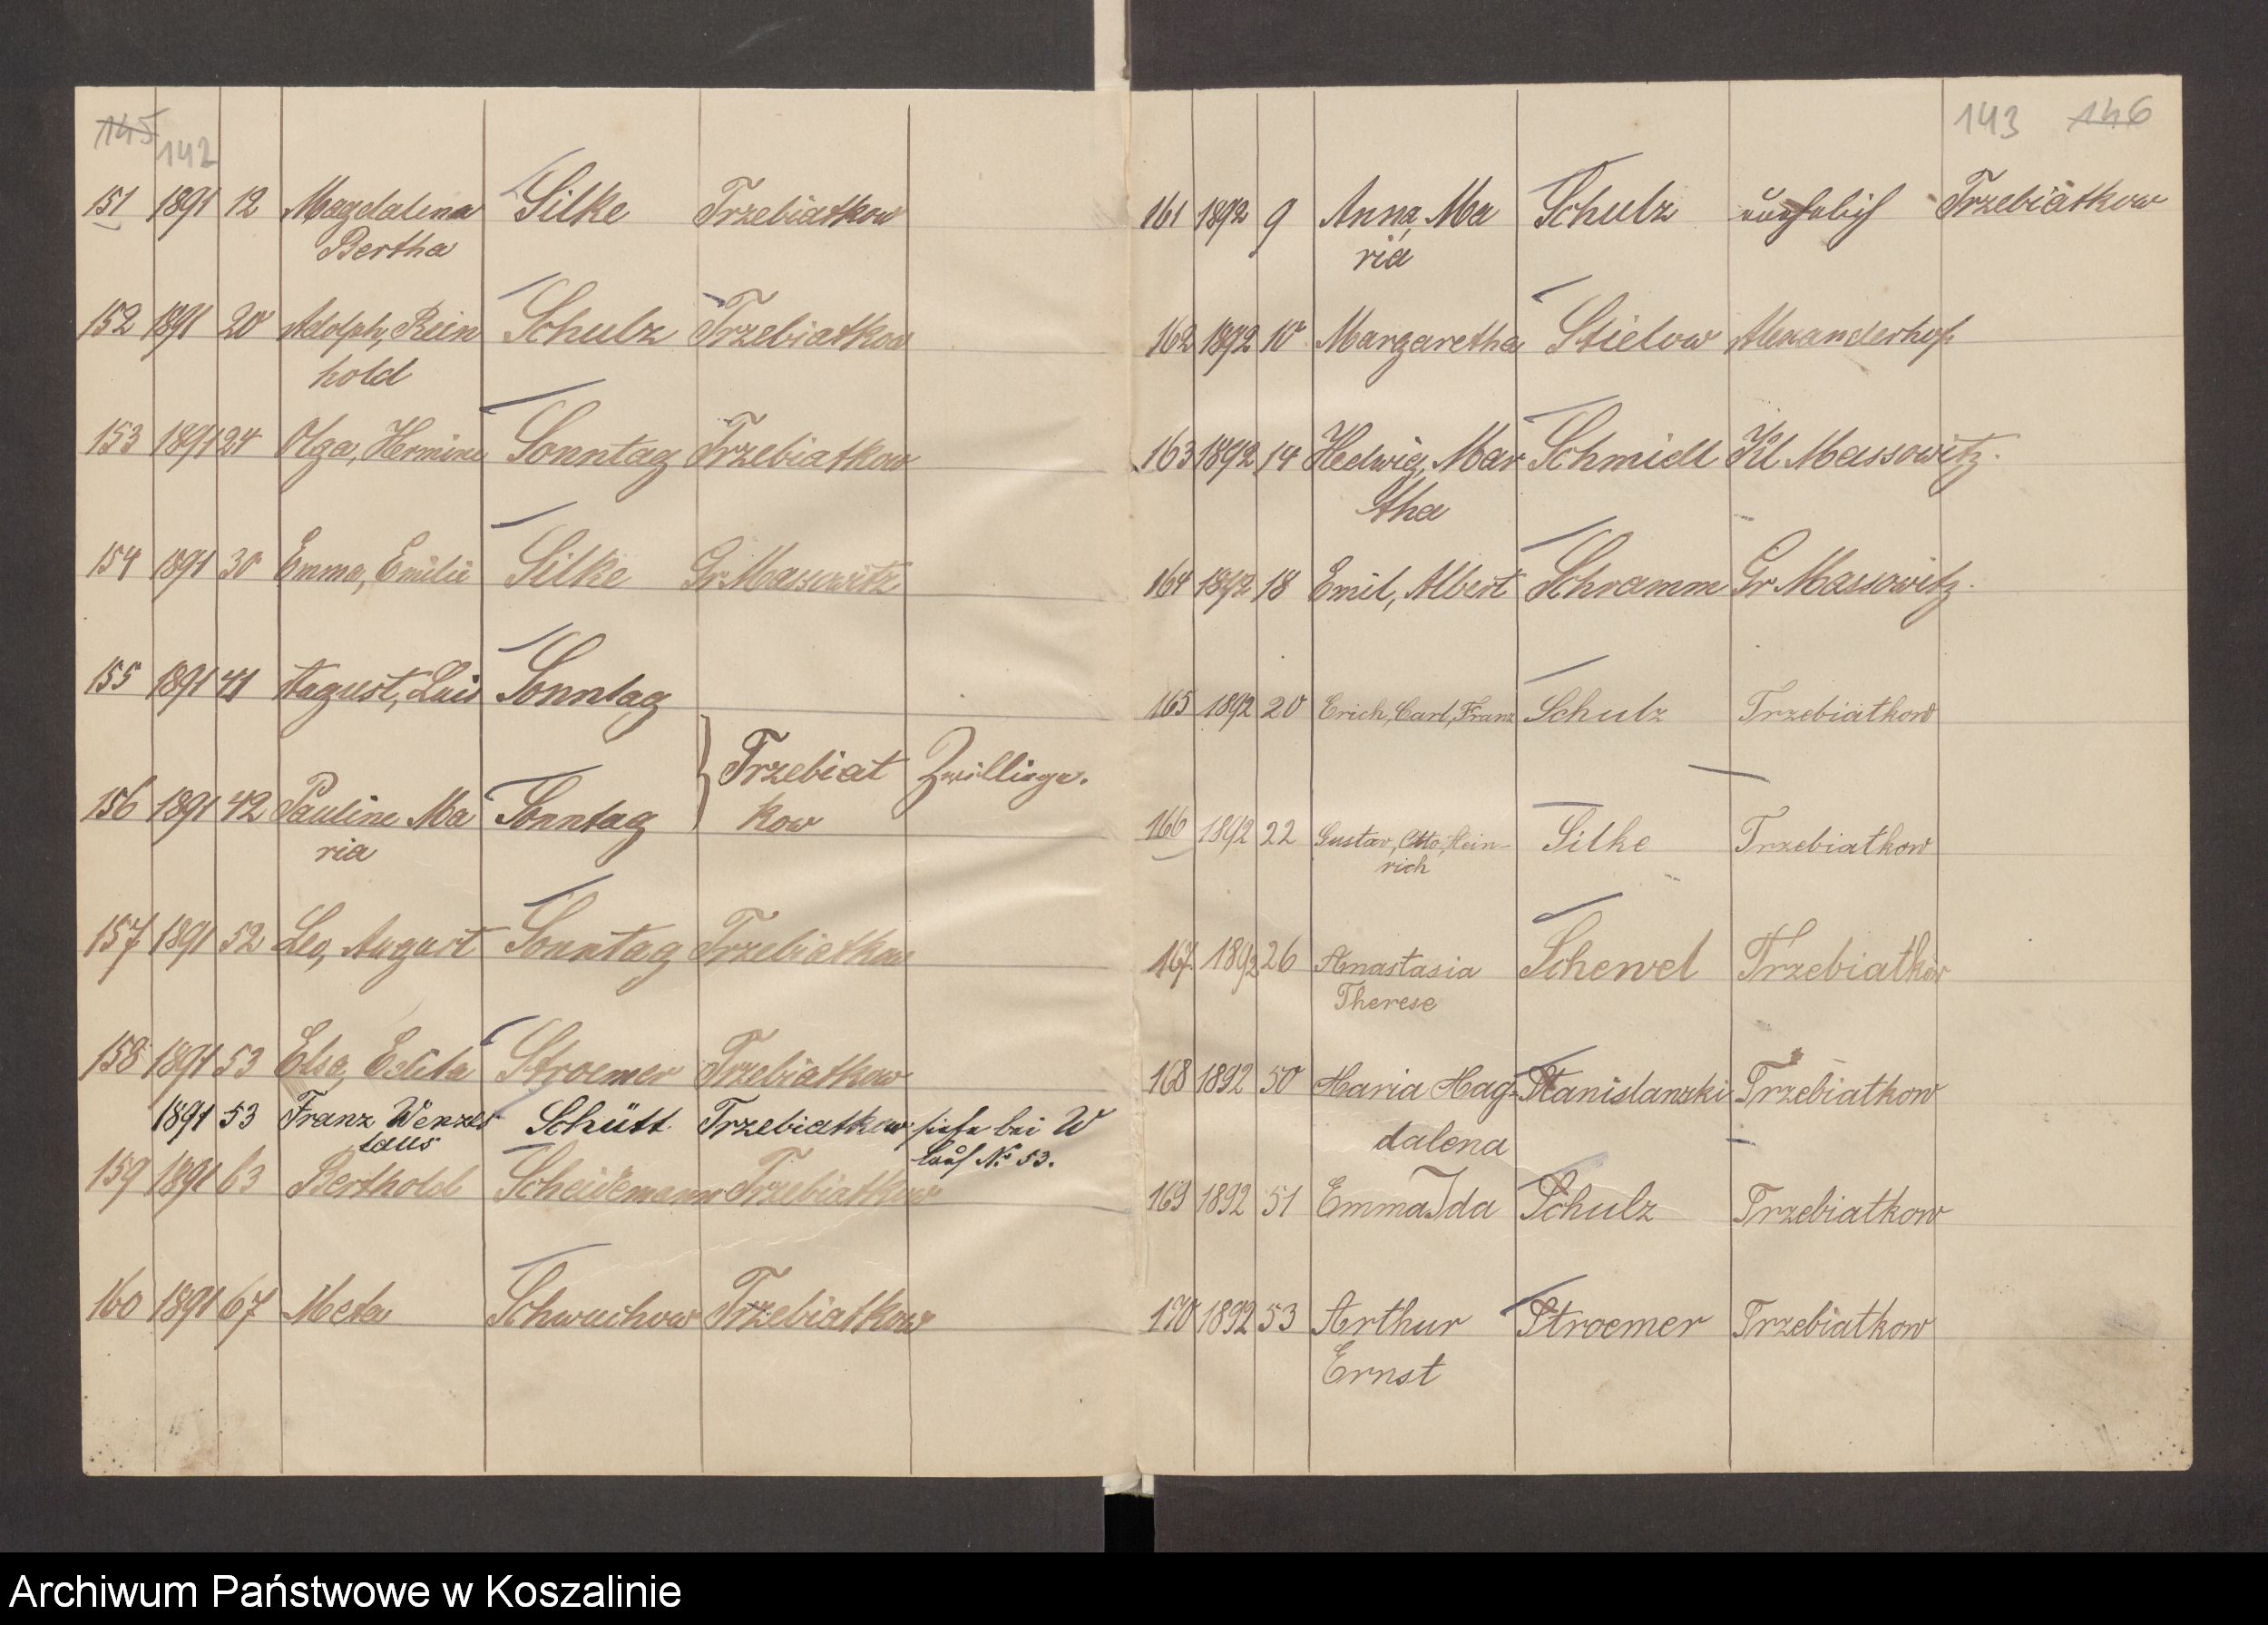 145
142
151 1891 12 Magdalena Silke Trzebiatkow
Bertha
152 1891 20 Adolph, Rein Schulz Trzebiatkow
hold
153 1891 24 Olga, Hermine Sonntag Trzebiatkow
154 1891 30 Emma, Emilie Silke Gr. Massowitz
155 1891 41 August, Luis Sonntag
} Trzebiat Zwillinge.
156 1891 42 Pauline Ma Sonntag kow
ria
157 1891 52 Leo, August Sonntag Trzebiatkow
158 1891 53 Elsa, Stroemer Trzebiatkow
1891 53 Franz Wenzes Schütt Trzebiatkow siehe bei W
laus lauf No 53.
159 1891 63 Berthold Scheidemann Trzebiatkow
160 1891 67 Meta Schwuchow Trzebiatkow
143 146
161 1892 9 Anna, Ma Schulz unehelich Trzebiatkow
ria
162 1892 10 Margaretha Stielow Alexanderhof
163 1892 14 Hedwig, Mar Schmidt Kl Massowitz.
tha
164 1892 18 Emil, Albert Schramm Gr Massowitz.
165 1892 20 Erich, Carl, Franz Schulz Trzebiatkow
166 1892 22 Gustav, Otto, Hein- Silke Trzebiatkow
rich
167. 1892 26 Anastasia Schewel Trzebiatkow
Therese
168 1892 50 Maria Mag- Stanislawski Trzebiatkow
dalena
169 1892 51 Emma Ida Schulz Trzebiatkow
170 1892 53 Arthur Stroemer Trzebiatkow
Ernst
Archiwum Państwowe w Koszalinie